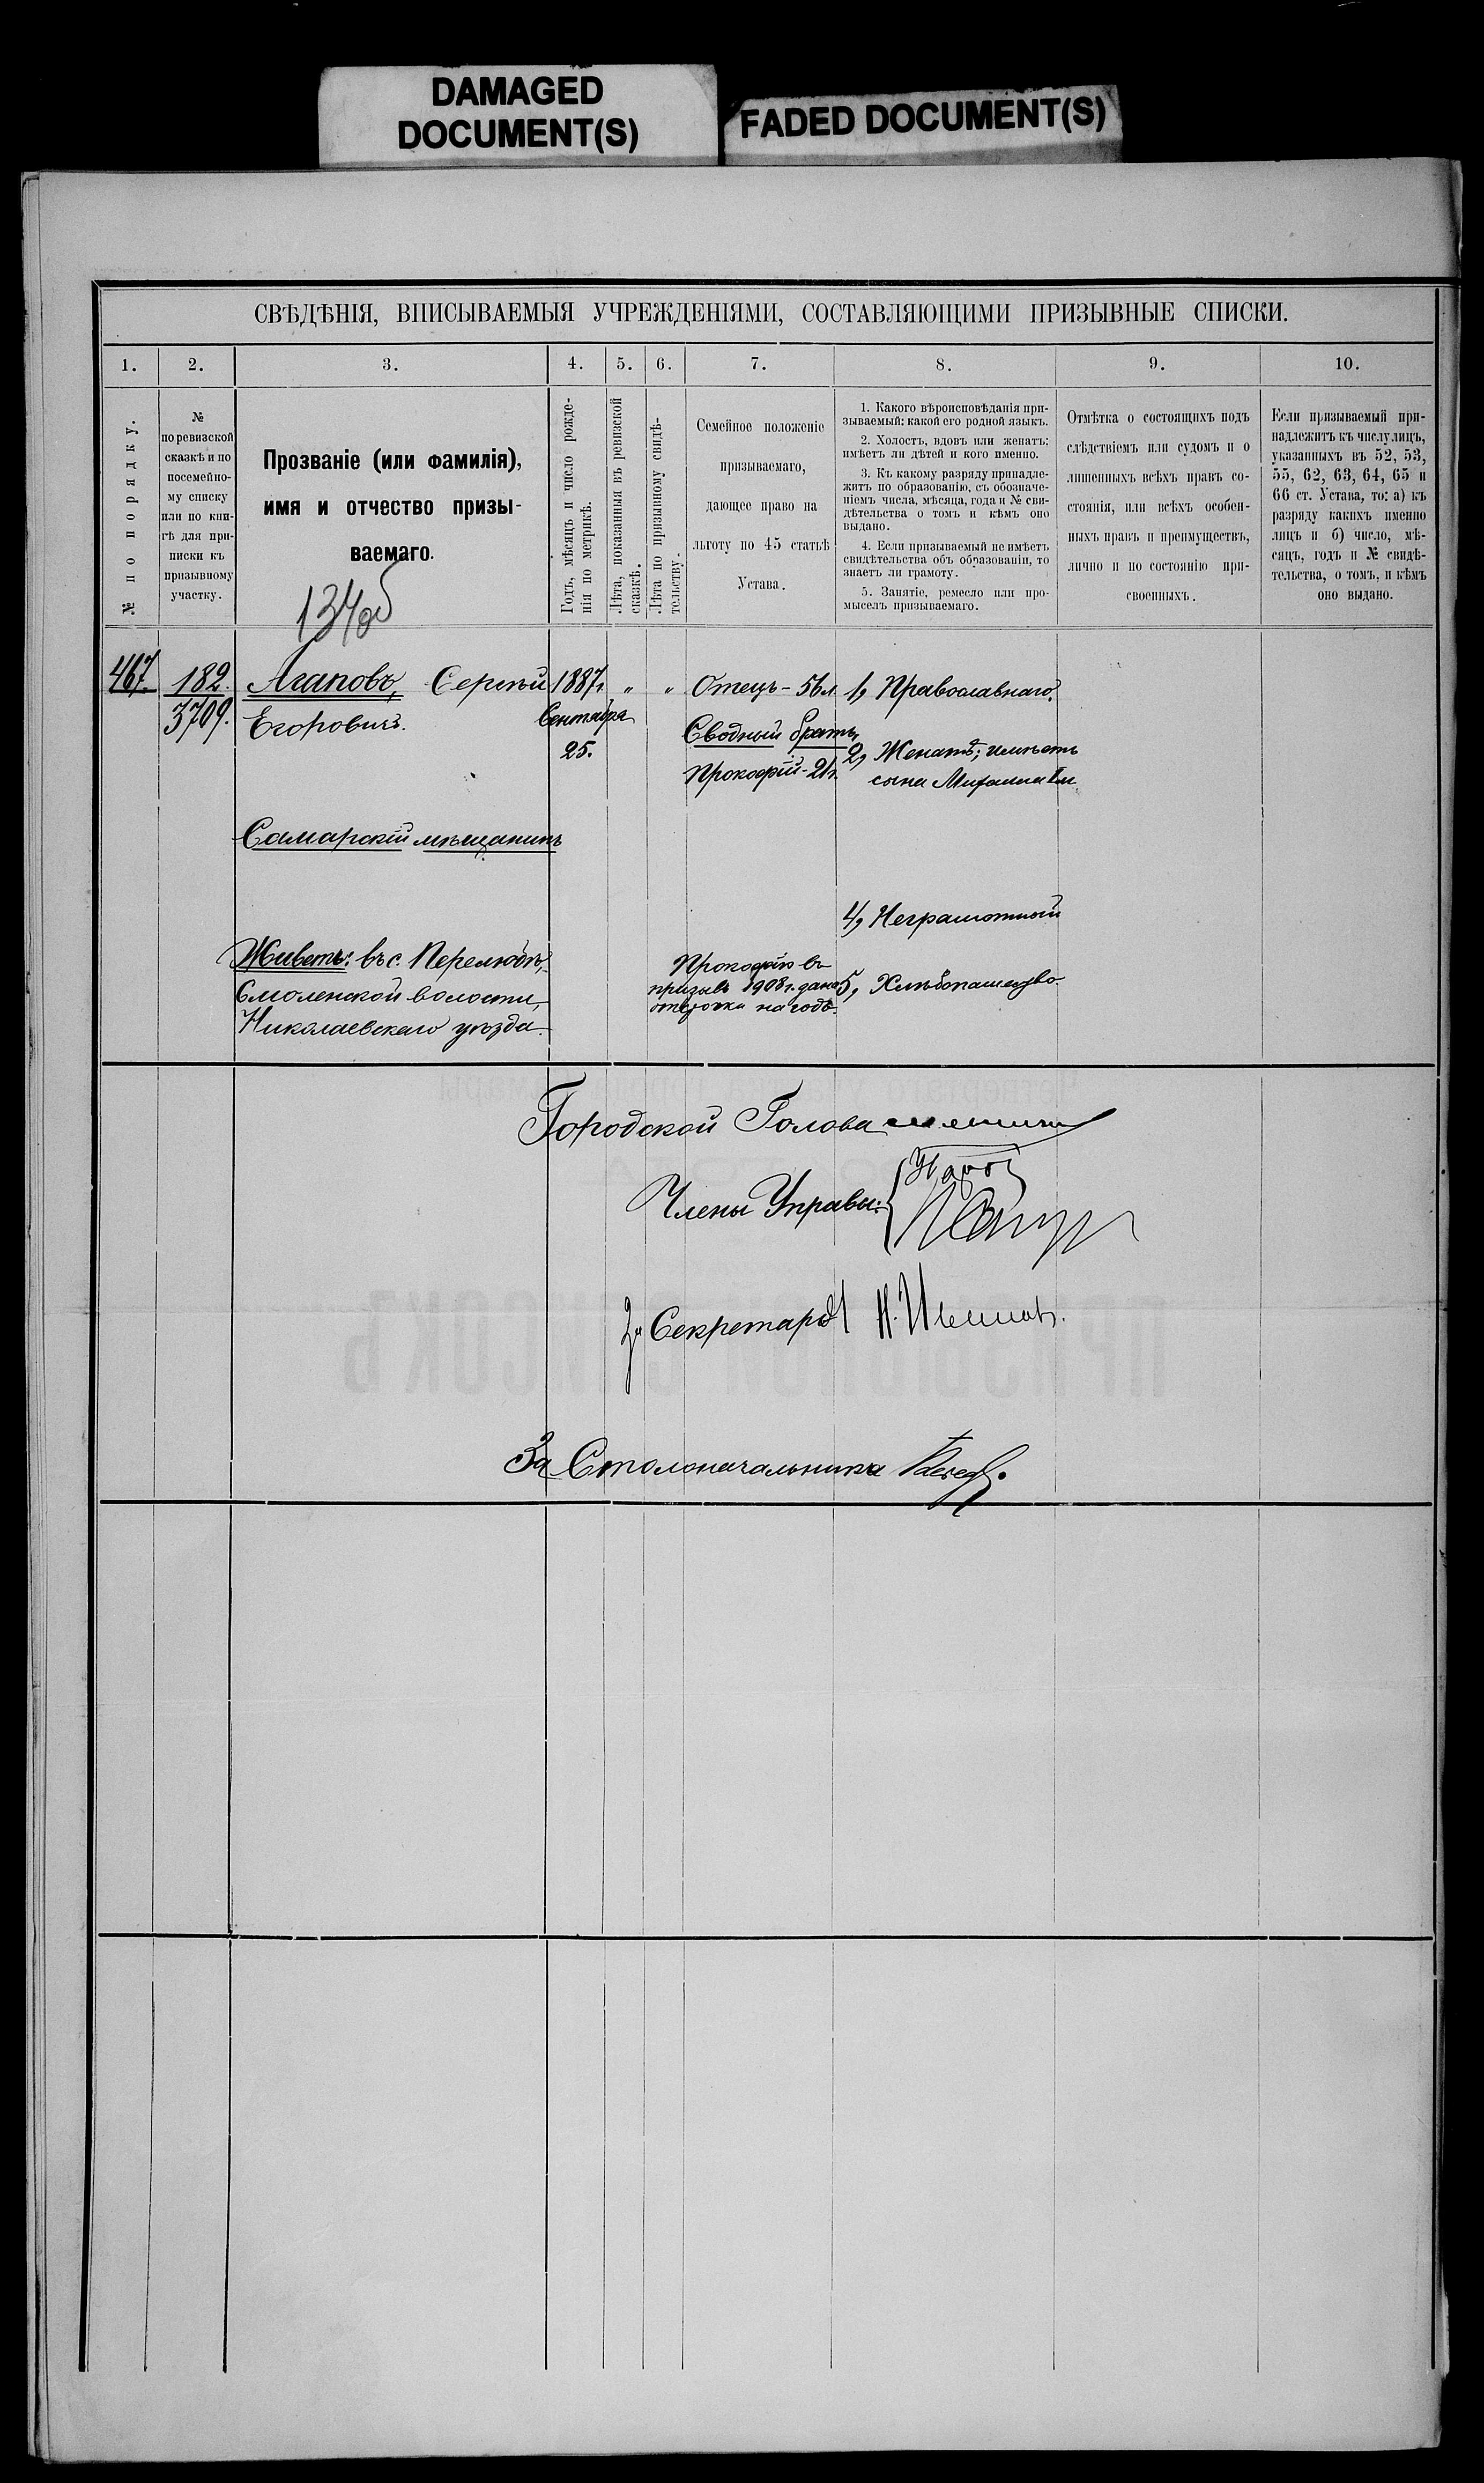 DAMAGED
DOCUMENT(S)
FADED DOCUMENT(S)
СВѢДѢНІЯ, ВПИСЫВАЕМЫЯ УЧРЕЖДЕНІЯМИ, СОСТАВЛЯЮЩИМИ ПРИЗЫВНЫЕ СПИСКИ.
1. 2. 3. 4. 5. 6. 7. 8. 9. 10.
№ по порядку.
№
по ревизской
сказкѣ и по
посемейно-
му списку
или по кни-
гѣ для при-
писки къ
призывному
участку.
Прозваніе (или фамилія),
имя и отчество призы-
ваемаго.
134об
Годъ, мѣсяцъ и число рожде-
нія по метрикѣ.
Лѣта, показанныя въ ревизской
сказкѣ.
Лѣта по призывному свидѣ-
тельству.
Семейное положеніе
призываемаго,
дающее право на
льготу по 45 статьѣ
Устава.
1. Какого вѣроисповѣданія при-
зываемый: какой его родной языкъ.
2. Холостъ, вдовъ или женатъ:
имѣетъ ли дѣтей и кого именно.
3. Къ какому разряду принадле-
житъ по образованію, съ обозначе-
ніемъ числа, мѣсяца, года и № сви-
дѣтельства о томъ и кѣмъ оно
выдано.
4. Если призываемый не имѣетъ
свидѣтельства объ образованіи, то
знаетъ ли грамоту.
5. Занятіе, ремесло или про-
мыселъ призываемаго.
Отмѣтка о состоящихъ подъ
слѣдствіемъ или судомъ и о
лишенныхъ всѣхъ правъ со-
стоянія, или всѣхъ особен-
ныхъ правъ и преимуществъ,
лично и по состоянію при-
своенныхъ.
Если призываемый при-
надлежитъ къ числу лицъ,
указанныхъ въ 52, 53,
55, 62, 63, 64, 65 и
66 ст. Устава, то: а) къ
разряду какихъ именно
лицъ и б) число, мѣ-
сяцъ, годъ и № свидѣ-
тельства, о томъ, и кѣмъ
оно выдано.
467.
182.
3709.
Агаповъ, Сергѣй
Егоровичъ.
Самарскій мѣщанинъ
Живетъ: въ с. Перелюбѣ,
Смоленской волости,
Николаевскаго уѣзда.
1887г.
Сентября
25.
" "
Отецъ - 56л.
Сводный братъ,
Прокофій - 21г.
Прокофію въ
призывъ 1908г. дана
отсрочка на годъ.
1, Православнаго.
2, Женатъ; имѣетъ
сына Михаила 1м.
4, Неграмотный
5, Хлѣбопашество
Городской Голова
Члены Управы:
За Секретаря
За Столоначальника